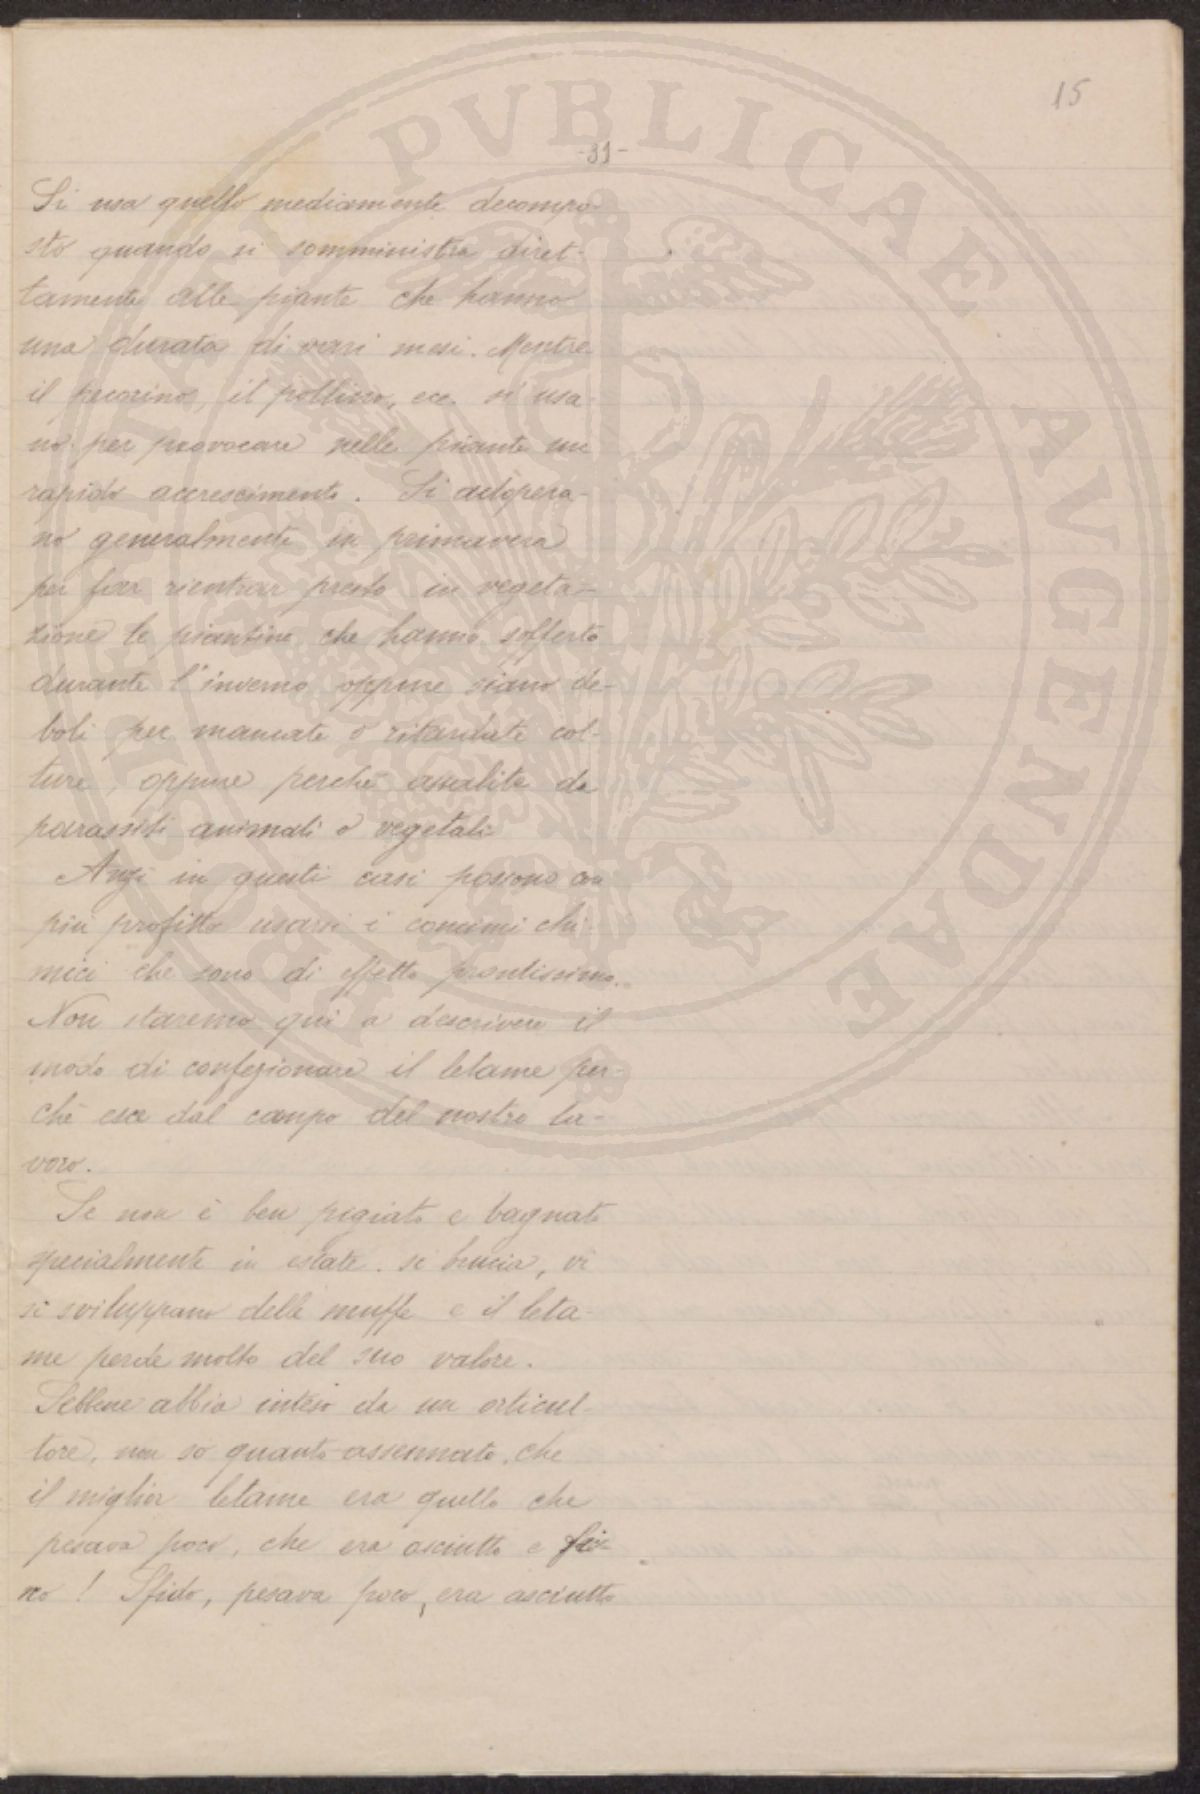 15
-31-
Si usa quello mediamente decompo-
sto quando si somministra diret-
tamente alle piante che hanno
una durata di vari mesi. Mentre
il pecorino, il pollino, ecc. si usa-
no per provocare nelle piante un
rapido accrescimento. Si adopera-
no generalmente in primavera
per far rientrar presto in vegeta-
zione le piantine che hanno sofferto
durante l'inverno oppure siano de-
boli per mancate o ritardate col-
ture, oppure perchè assalite da
parassiti animali o vegetali
Anzi in questi casi possono con
più profitto usarsi i concimi chi-
mici che sono di effetto prontissimo.
Non staremo qui a descrivere il
modo di confezionare il letame per-
chè esce dal campo del nostro la-
voro.
Se non è ben pigiato e bagnato
specialmente in estate. si brucia, vi
si sviluppano delle muffe e il leta-
me perde molto del suo valore.
Sebbene abbia inteso da un orticul-
tore, non so quanto assennato, che
il miglior letame era quello che
pesava poco, che era asciutto e fi-
no! Sfido, pesava poco, era asciutto
ARCHIGYMNASII PVBLICAE AVGENDAE